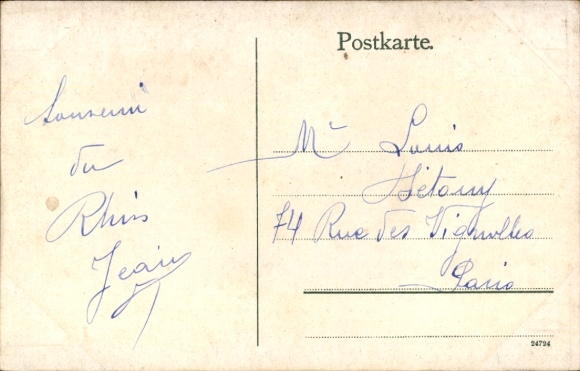 Postkarte.
Souvenir
du
Rhin
Jean
Mr Louis
74 Rue des Vignolles
Paris
24724